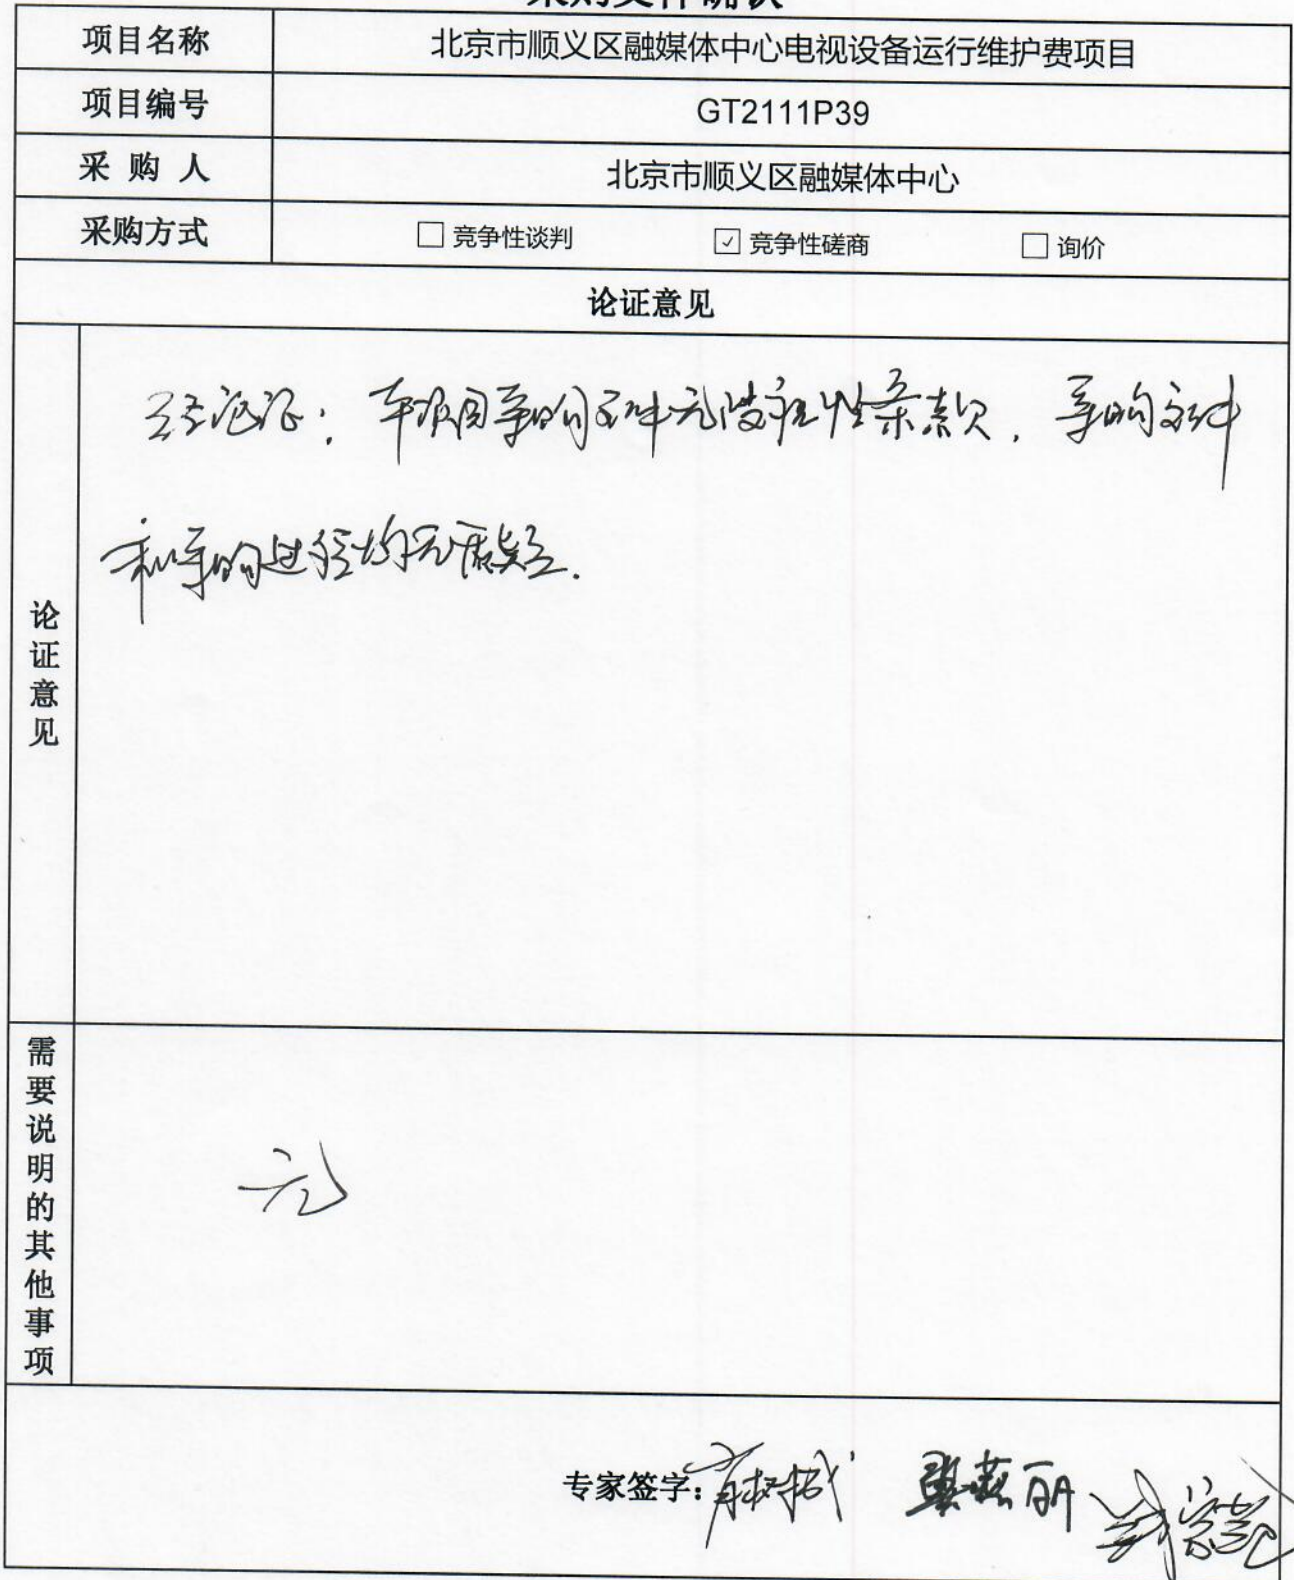 采购文件确认
项目名称 北京市顺义区融媒体中心电视设备运行维护费项目
项目编号 GT2111P39
采购人 北京市顺义区融媒体中心
采购方式 □ 竞争性谈判 ☑ 竞争性磋商 □ 询价
论证意见
论证意见
经论证：本项目采购文件无歧视性条款，采购文件
和采购过程均无质疑.
需要说明的其他事项
无
专家签字：